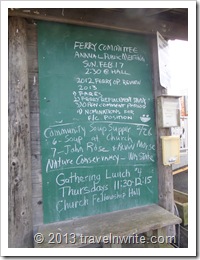 FERRY COMMITTEE
ANNUAL PUBLIC MEETING
SUN. FEB. 17
2:30 @ HALL
2012 FERRY OP. REVIEW
2013
1) FARES
2) FERRY REPLACEMENT
NOMINATIONS FOR
F/C POSITION
Community Soup Supper 2/26
6 - Soup at Church
7 - John Rose &
Nature Conservancy - WA State
Gathering Lunch $4
Thursdays 11:30-12:15
Church Fellowship Hall
© 2013 travelnwrite.com